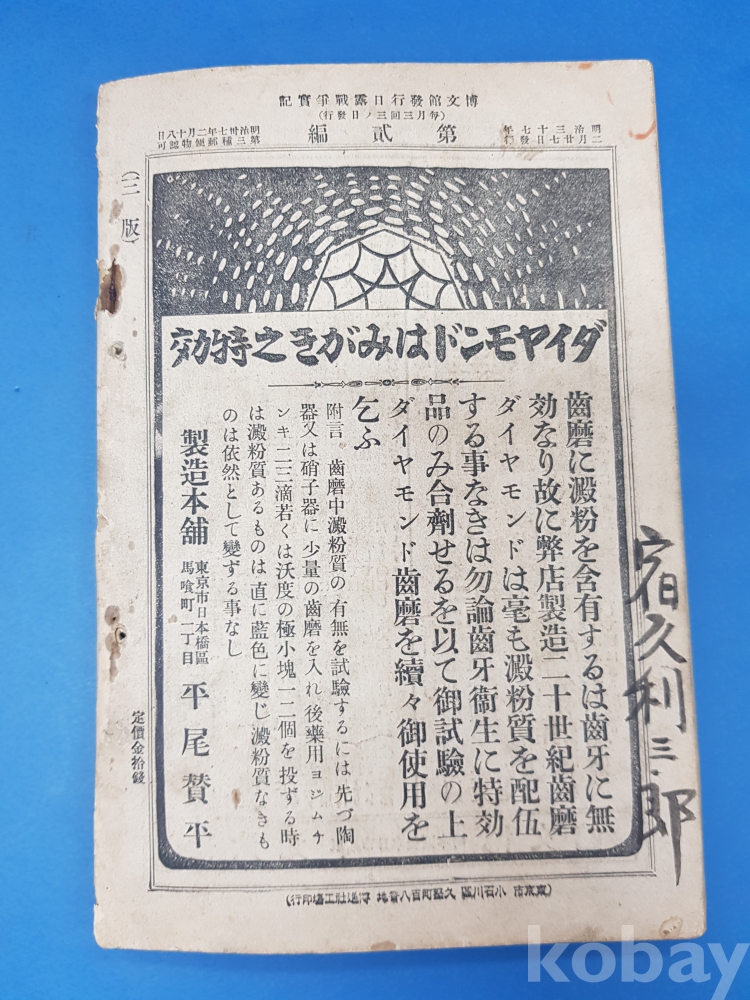 記實爭戰露日行發館文博
(行發日ノ三回三月每)
明治三十七年
二月廿七日發行
編貳第
明治卅七年二月十八日
第三種郵便物認可
(三版)
効特之きがみはドンモヤイダ
齒磨に澱粉を含有するは齒牙に無
効なり故に弊店製造二十世紀齒磨
ダイヤモンドは毫も澱粉質を配伍
する事なきは勿論齒牙衞生に特効
品のみ合劑せるを以て御試驗の上
ダイヤモンド齒磨を續々御使用を
乞ふ
附言 齒磨中澱粉質の有無を試驗するには先づ陶
器又は硝子器に少量の齒磨を入れ後藥用ヨジムチ
ンキ二三滴若くは沃度の極小塊一二個を投ずる時
は澱粉質あるものは直に藍色に變じ澱粉質なきも
のは依然として變ずる事なし
製造本舖
東京市日本橋區
馬喰町二丁目
平尾贊平
定價金拾錢
宿久利三郎
(行印塲工社進博 地番八百町堅久 區川石小 市京東)
kobay